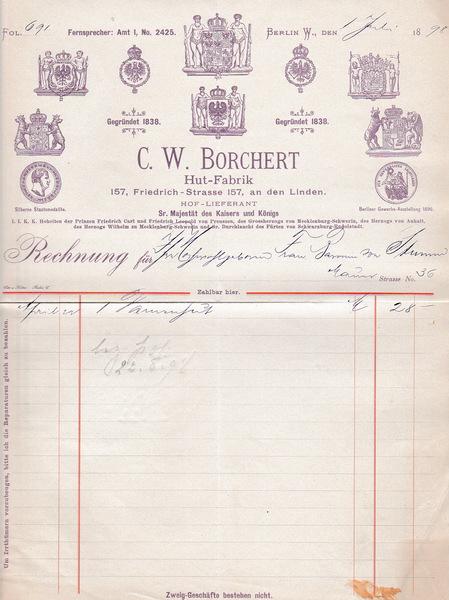 Fol. 691
Fernsprecher: Amt I, No. 2425.
Berlin W., den 1 Juli 1898
Gegründet 1838.
Gegründet 1838.
C. W. Borchert
Hut-Fabrik
157, Friedrich-Strasse 157, an den Linden.
Hof-Lieferant
Sr. Majestät des Kaisers und Königs
I. I. K. K. Hoheiten der Prinzen Friedrich Carl und Friedrich Leopold von Preussen, des Grossherzogs von Mecklenburg-Schwerin, des Herzogs von Anhalt,
des Herzogs Wilhelm zu Mecklenburg-Schwerin und Sr. Durchlaucht des Fürsten von Schwarzburg-Rudolstadt.
Silberne Staatsmedaille.
Berliner Gewerbe-Ausstellung 1896.
Rechnung für Frau Baronin von
Mauer Strasse No. 36
Zahlbar hier.
April 1 M 28 —
22.8.98
Um Irrthümern vorzubeugen, bitte ich die Reparaturen gleich zu bezahlen.
Zweig-Geschäfte bestehen nicht.